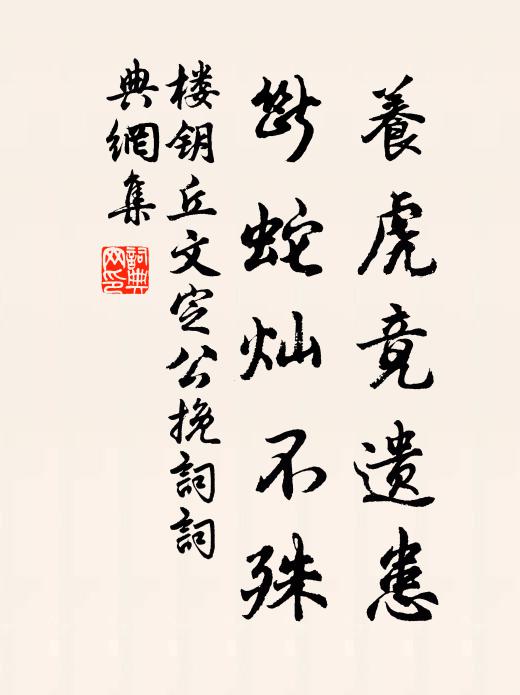 養虎竟遗患
断蛇灿不殊
楼钥丘文定公挽詞詞
典網集
詞典網印